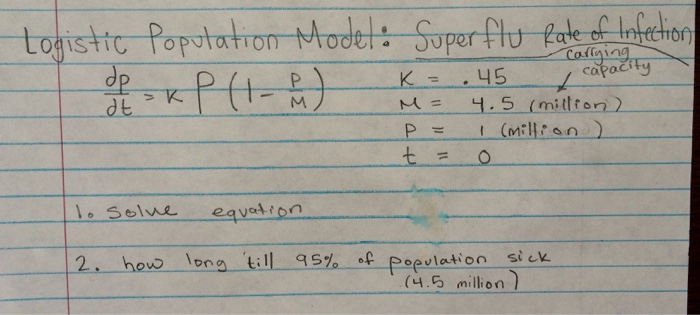 Logistic Population Model: Superflu Rate of Infection
dp/dt = K P (1 - P/M)
K = .45
carrying capacity
M = 4.5 (million)
P = 1 (million)
t = 0
1. solve equation
2. how long 'till 95% of population sick
(4.5 million)